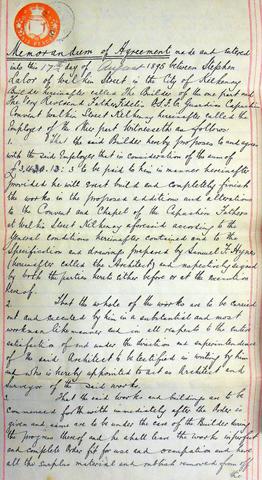 Memorandum of Agreement made and entered
into this 17th day of August 1895 between Stephen
Lalor of Walkin Street in the City of Kilkenny
Builder hereinafter called The Builder of the one part and
The Very Reverend Father Fidelis O.S.F.C. Guardian Capuchin
Convent Walkin Street Kilkenny hereinafter called the
Employer of the other part Witnesseth as follows:
1. That the said Builder hereby proposes to and agrees
with the said Employer that in consideration of the sum of
to be paid to him in manner hereinafter
provided he will erect build and completely finish
the works in the proposed additions and alterations
to the Convent and Chapel of the Capuchin Fathers
at Walkin Street Kilkenny aforesaid according to the
General conditions hereinafter contained and to the
Specification and drawings prepared by Samuel F. Hynes
(hereinafter called the Architect) and respectively signed
by both the parties hereto either before or at the execution
hereof.
2. That the whole of the works are to be carried
out and executed by him in a substantial and most
workmanlike manner and in all respects to the entire
satisfaction of and under the direction and superintendence
of the said Architect to be testified in writing by him
and who is hereby appointed to act as Architect and
Surveyor of the said works.
3. That the said works and buildings are to be
commenced forthwith immediately after the Order is
given and same are to be under the care of the Builder during
the progress thereof and he shall leave the works in perfect
and complete order fit for use and occupation and have
all the surplus material and rubbish removed from off
the